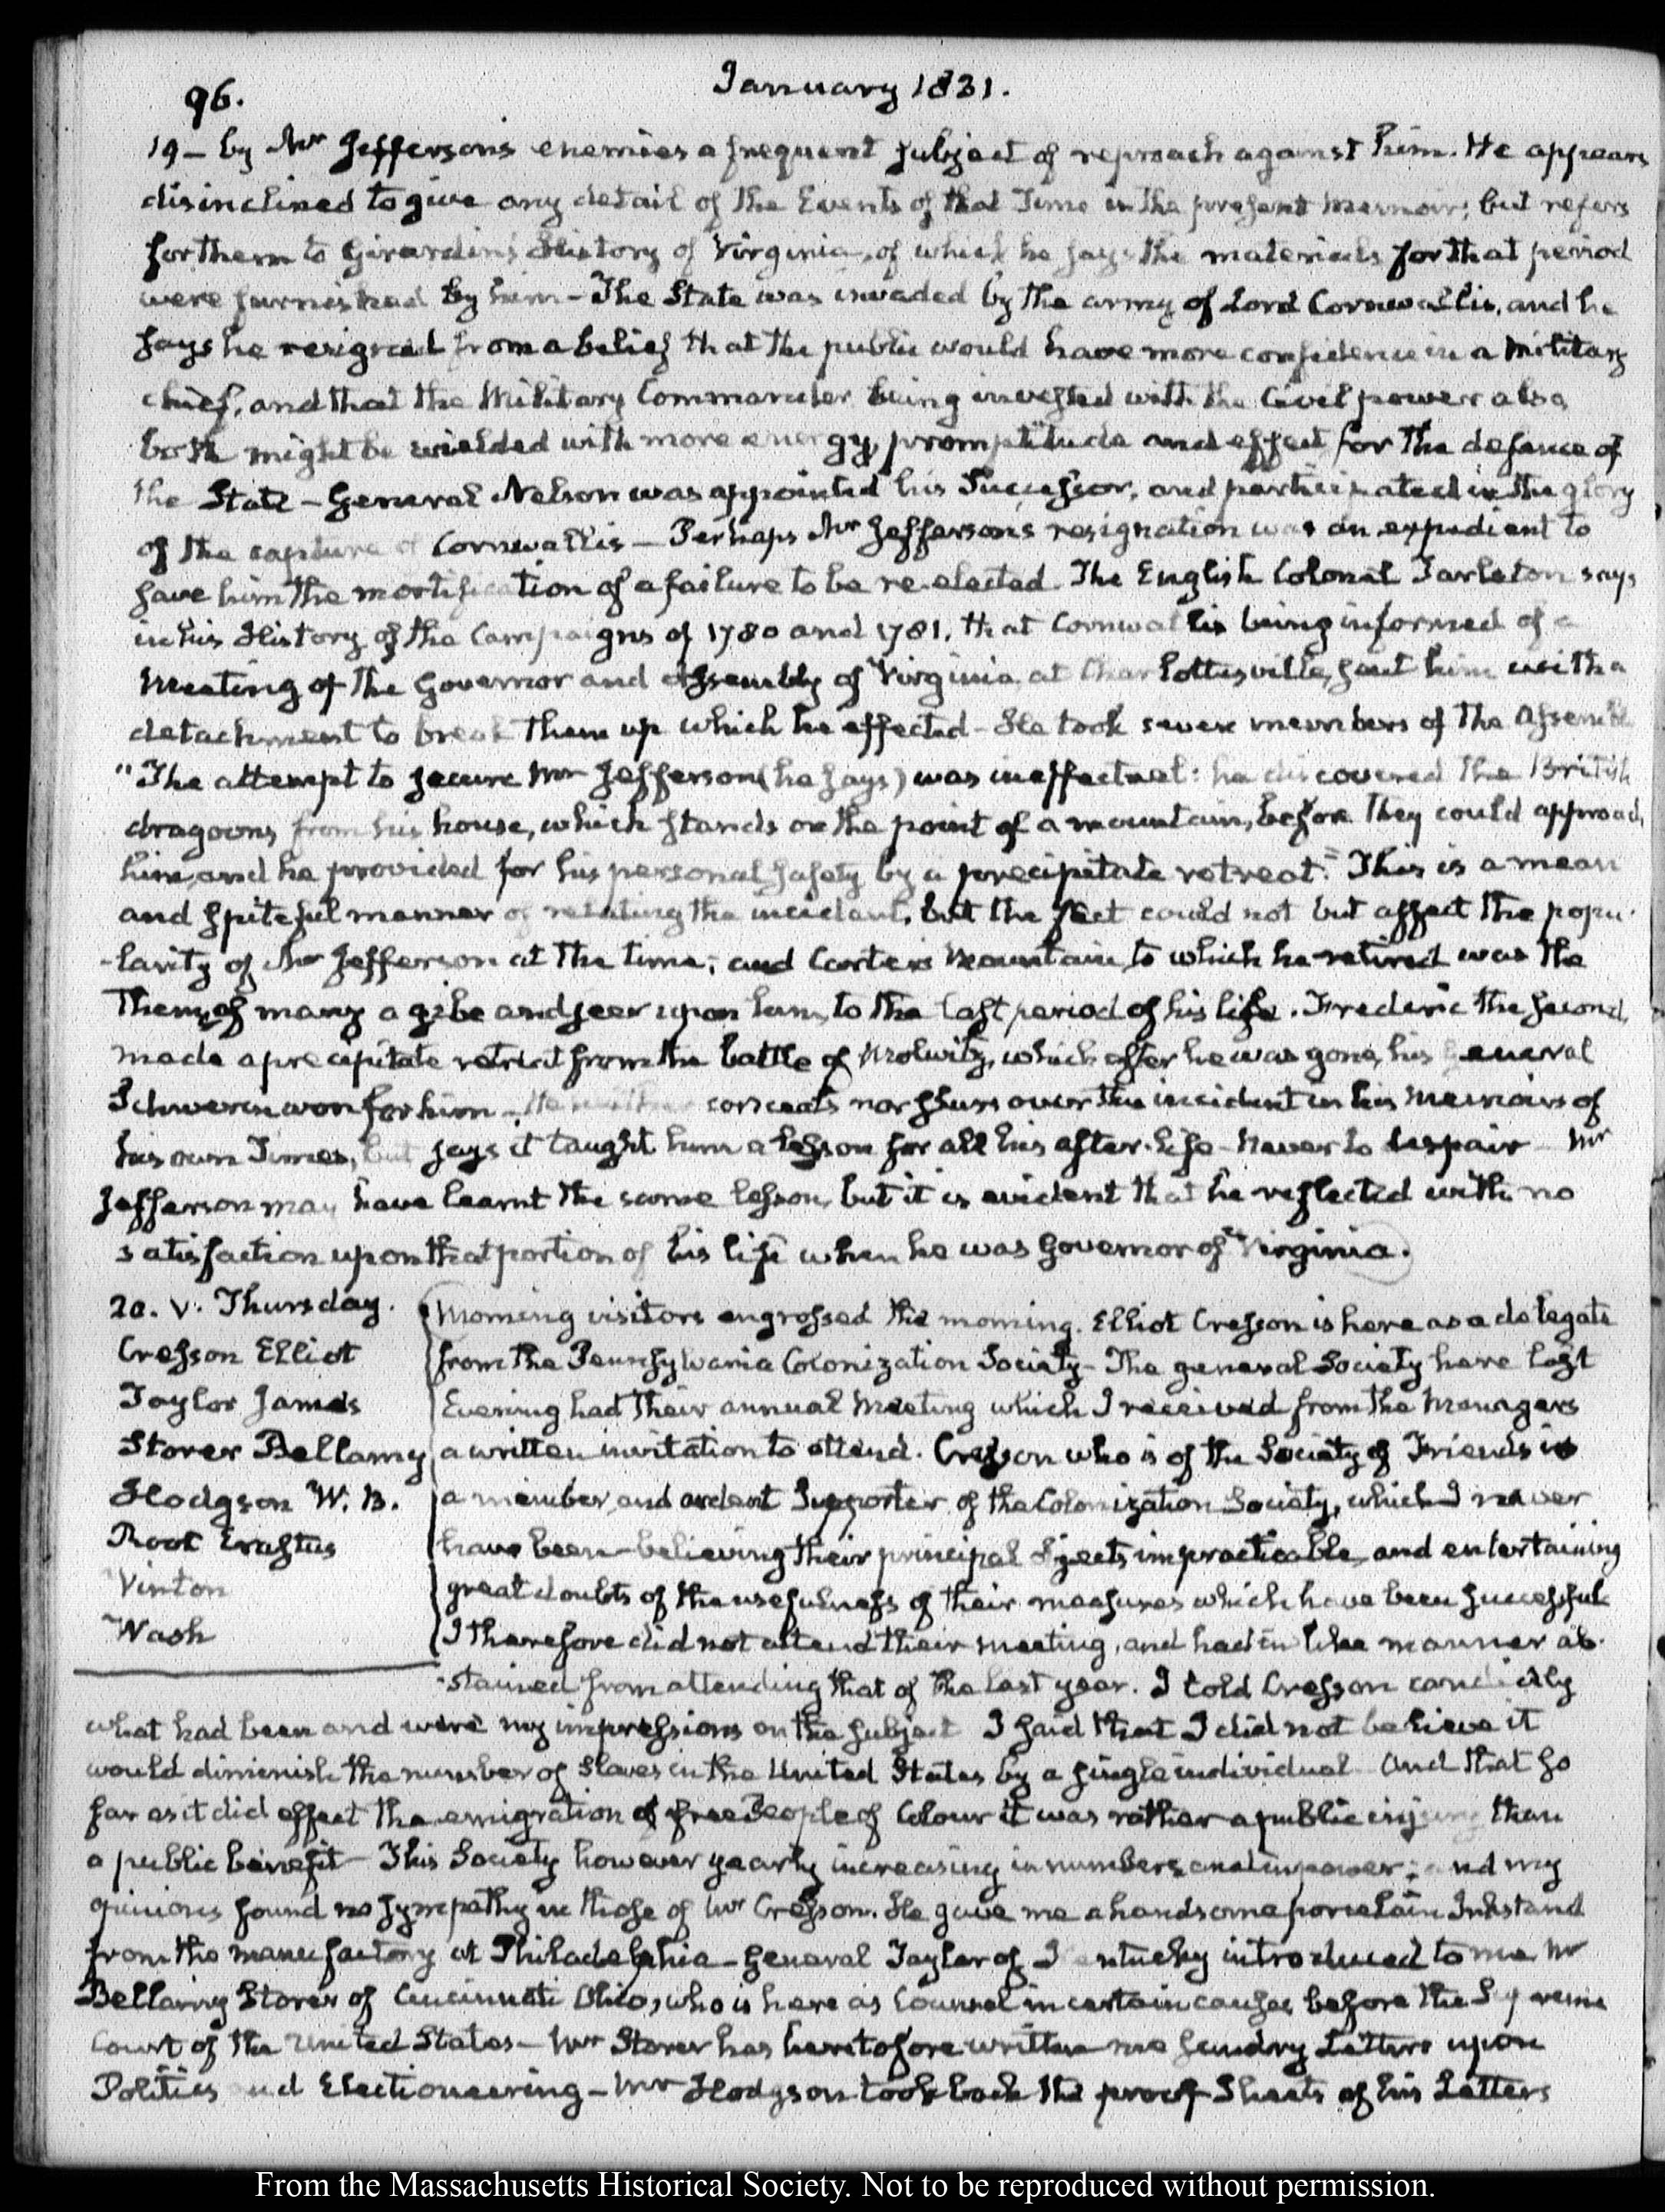 96.
January 1831.
19 — by Mr Jefferson's enemies a frequent subject of reproach against him. He appears
disinclined to give any detail of the Events of that Time in the present memoir; but refers
for them to Girardin's History of Virginia, of which he says the materials for that period
were furnished by him — The State was invaded by the army of Lord Cornwallis, and he
says he resigned from a belief that the public would have more confidence in a Military
chief, and that the Military Commander being invested with the Civil power also,
both might be wielded with more energy, promptitude and effect for the defence of
the State — General Nelson was appointed his Successor, and participated in the glory
of the capture of Cornwallis — Perhaps Mr Jefferson's resignation was an expedient to
save him the mortification of a failure to be re-elected. The English Colonel Tarleton says,
in his History of the Campaigns of 1780 and 1781, that Cornwallis being informed of a
meeting of the Governor and Assembly of Virginia, at Charlottesville, sent him with a
detachment to break them up which he effected — He took seven members of the Assembly
"The attempt to secure Mr Jefferson (he says) was ineffectual: he discovered the British
dragoons from his house, which stands on the point of a mountain, before they could approach
him, and he provided for his personal safety by a precipitate retreat." This is a mean
and spiteful manner of relating the incident, but the fact could not but affect the popu-
-larity of Mr Jefferson at the time; and Carter's Mountain, to which he retired was the
Theme of many a gibe and jeer upon him, to the last period of his life. Frederic the second,
made a precipitate retreat from the battle of Molwitz, which after he was gone, his General
Schwerin won for him. He neither conceals nor slurs over this incident in his Memoirs of
his own Times, but says it taught him a lesson for all his after-life — Never to despair — Mr
Jefferson may have learnt the same lesson, but it is evident that he reflected with no
satisfaction upon that portion of his life when he was Governor of Virginia.
20. V. Thursday.
Cresson Elliot
Taylor James
Storer Bellamy
Hodgson W. B.
Root Erastus
Vinton
Wash
Morning visitors engrossed the morning. Elliot Cresson is here as a delegate
from the Pennsylvania Colonization Society — The general Society here last
Evening had their annual Meeting which I received from the Managers
a written invitation to attend. Cresson who is of the Society of Friends is
a member, and ardent Supporter of the Colonization Society, which I never
have been — believing their principal objects impracticable, and entertaining
great doubts of the usefulness of their measures which have been successful
I therefore did not attend their meeting, and had in like manner ab-
-stained from attending that of the last year. I told Cresson candidly
what had been and were my impressions on the subject I said that I did not believe it
would diminish the number of Slaves in the United States by a single individual And that so
far as it did effect the emigration of free People of Colour it was rather a public injury than
a public benefit — This Society however yearly increasing in numbers and in power; and my
opinions found no sympathy in those of Mr Cresson. He gave me a handsome porcelain Inkstand
from the manufactory at Philadelphia — General Taylor of Kentucky introduced to me Mr
Bellamy Storer of Cincinnati Ohio, who is here as Counsel in certain causes before the Supreme
Court of the United States — Mr Storer has heretofore written me sundry Letters upon
Politics and Electioneering — Mr Hodgson took back the proof Sheets of his Letters
From the Massachusetts Historical Society. Not to be reproduced without permission.